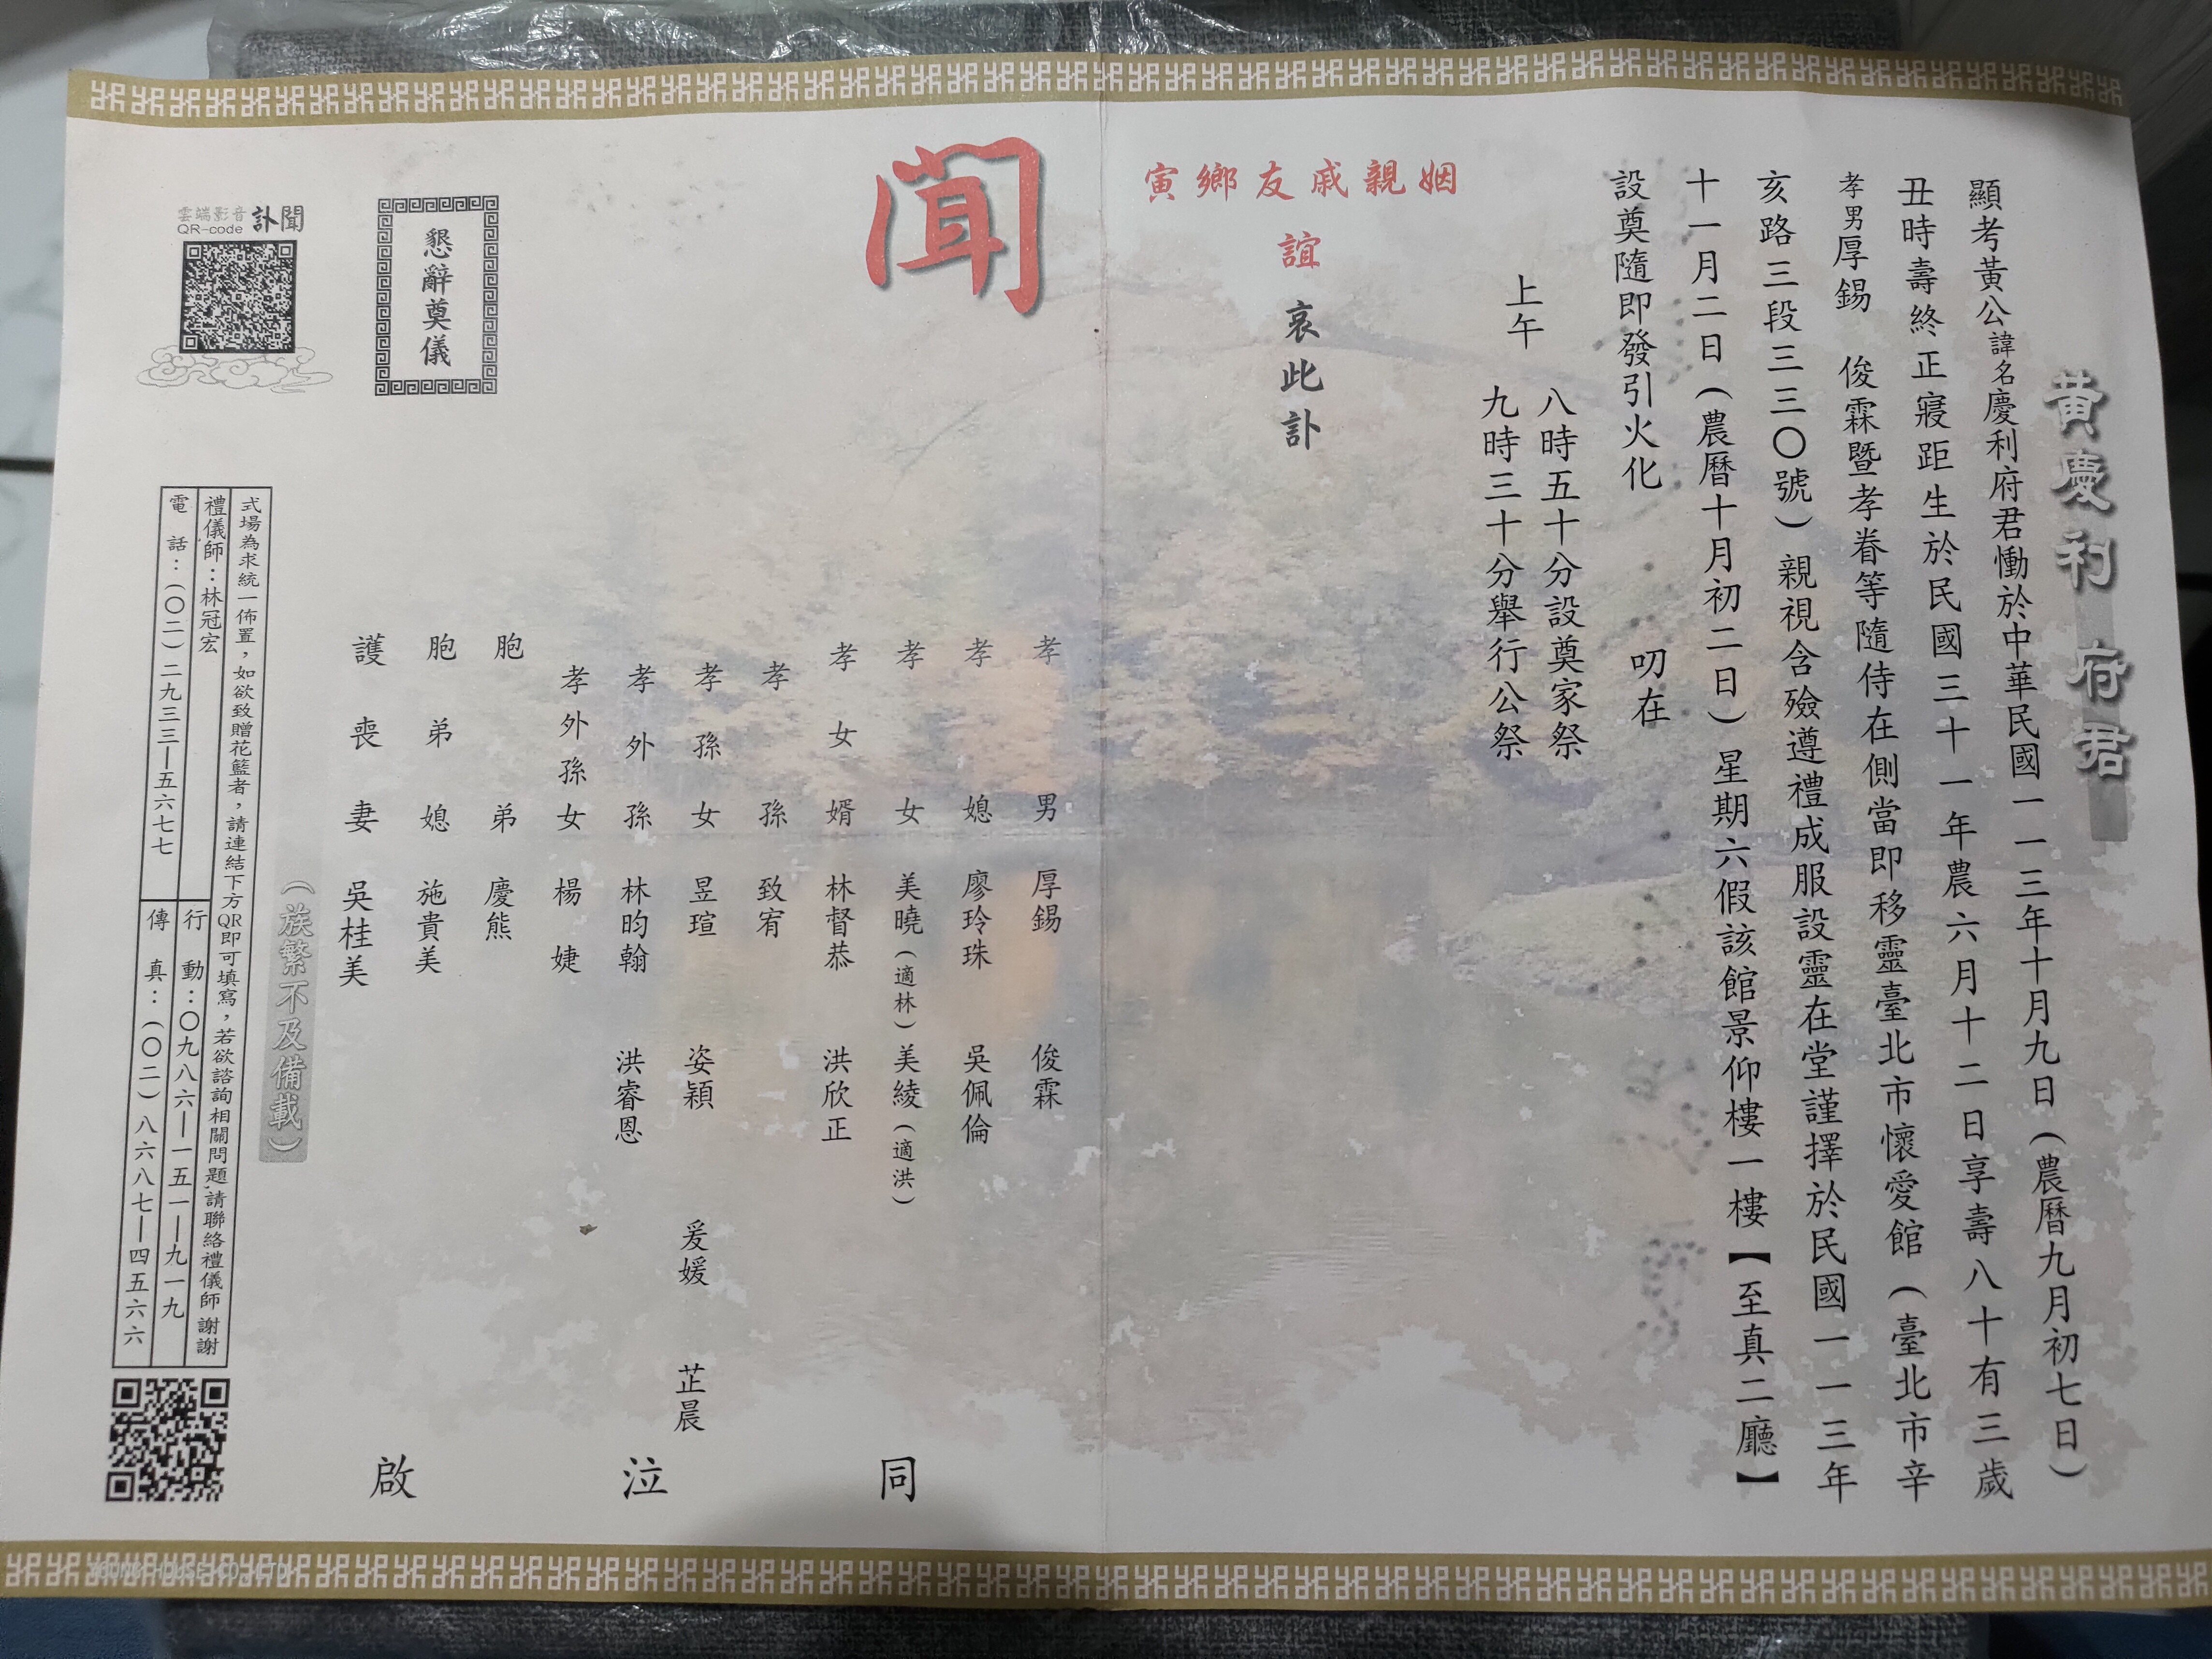 黃慶利 府君
顯考黃公諱名慶利府君慟於中華民國一一三年十月九日(農曆九月初七日)
丑時壽終正寢距生於民國三十一年農六月十二日享壽八十有三歲
孝男厚錫 俊霖暨孝眷等隨侍在側當即移靈臺北市懷愛館(臺北市辛
亥路三段三三〇號)親視含殮遵禮成服設靈在堂謹擇於民國一一三年
十一月二日(農曆十月初二日)星期六假該館景仰樓一樓【至真二廳】
上午
八時五十分設奠家祭
九時三十分舉行公祭
設奠隨即發引火化 叨在
姻親戚友鄉寅
誼 哀此訃
聞
孝男 厚錫 俊霖
孝媳 廖玲珠 吳佩倫
孝女 美曉(適林) 美綾(適洪)
孝女婿 林督恭 洪欣正
孝孫 致宥
孝孫女 昱瑄 姿穎 爰媛 芷晨
孝外孫 林昀翰 洪睿恩
孝外孫女 楊婕
胞弟 慶熊
胞弟媳 施貴美
護喪妻 吳桂美
同泣啟
(族繁不及備載)
懇辭奠儀
雲端影音
QR-code
訃聞
式場為求統一佈置,如欲致贈花籃者,請連結下方QR即可填寫,若欲諮詢相關問題,請聯絡禮儀師 謝謝
禮儀師:林冠宏
行動:〇九八六—一五一—九一九
電話:(〇二)二九三三—五六七七
傳真:(〇二)八六八七—四五六六
YOUNG HOUSE CO., LTD